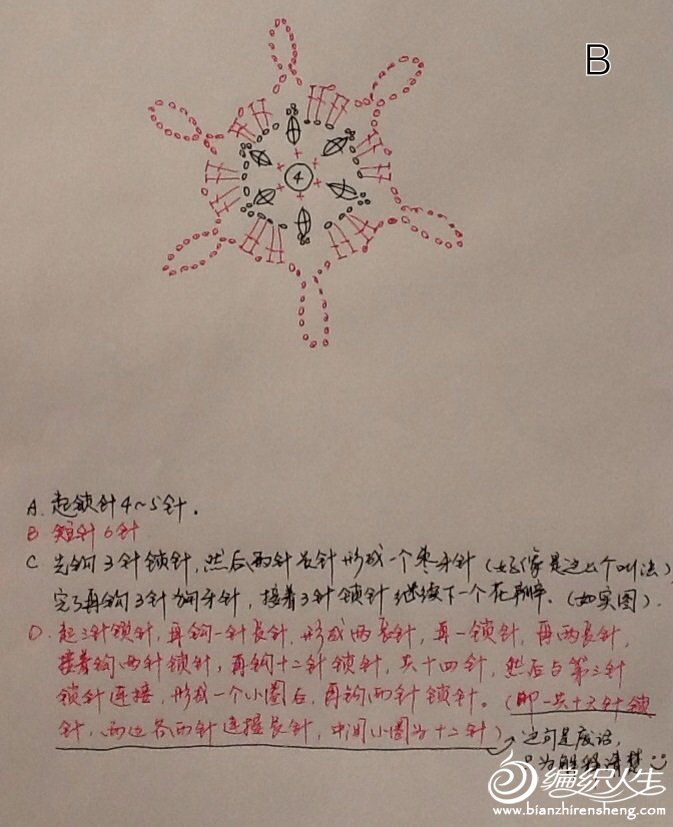 B
4
A. 起锁针4~5针.
B 短针6针
C 先钩3针锁针,然后两针长针形成一个枣牙针(好像是这么个叫法)
完了再钩3针狗牙针,接着3针锁针继续下一个花瓣.(如实图).
D. 起3针锁针,再钩一针长针,形成两长针,再一锁针,再两长针,
接着钩两针锁针,再钩十二针锁针,共十四针,然后与第三针
锁针连接,形成一个小圈后,再钩两针锁针。(即一共十六针锁
针,两边各两针连接长针,中间小圈为十二针)
这句是废话,
只为解释清楚
编织人生
www.bianzhirensheng.com